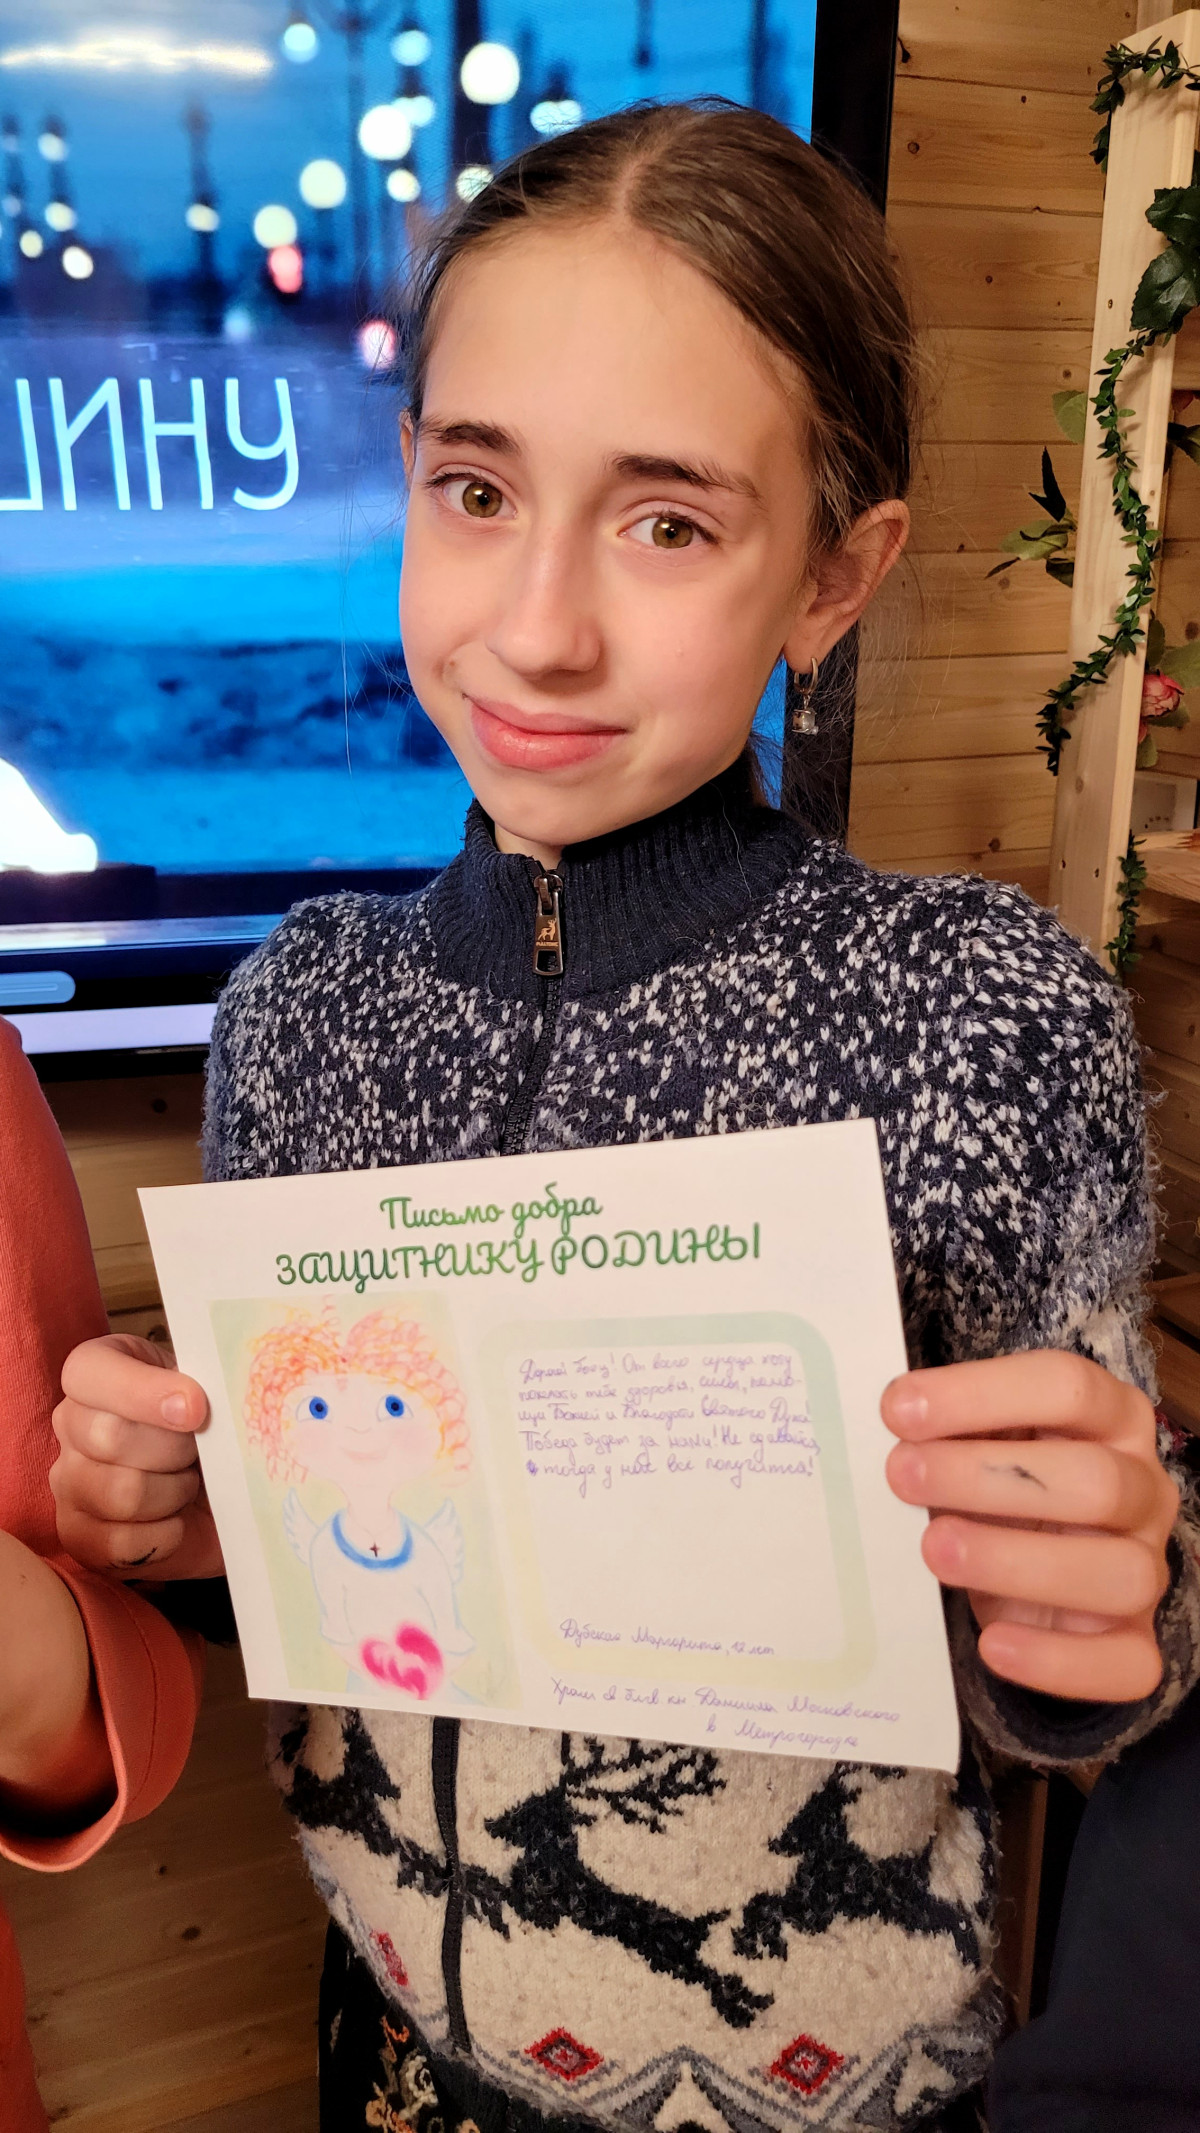 ШИНУ
Письмо добра
ЗАЩИТНИКУ РОДИНЫ
Дорогой боец! От всего сердца хочу
пожелать тебе здоровья, силы, помо-
щи Божией и Благодати Святого Духа!
Победа будет за нами! Не сдавайся,
и тогда у нас все получится!
Дубская Маргарита, 12 лет
Храм св блгв. кн Даниила Московского
в Метрогородке